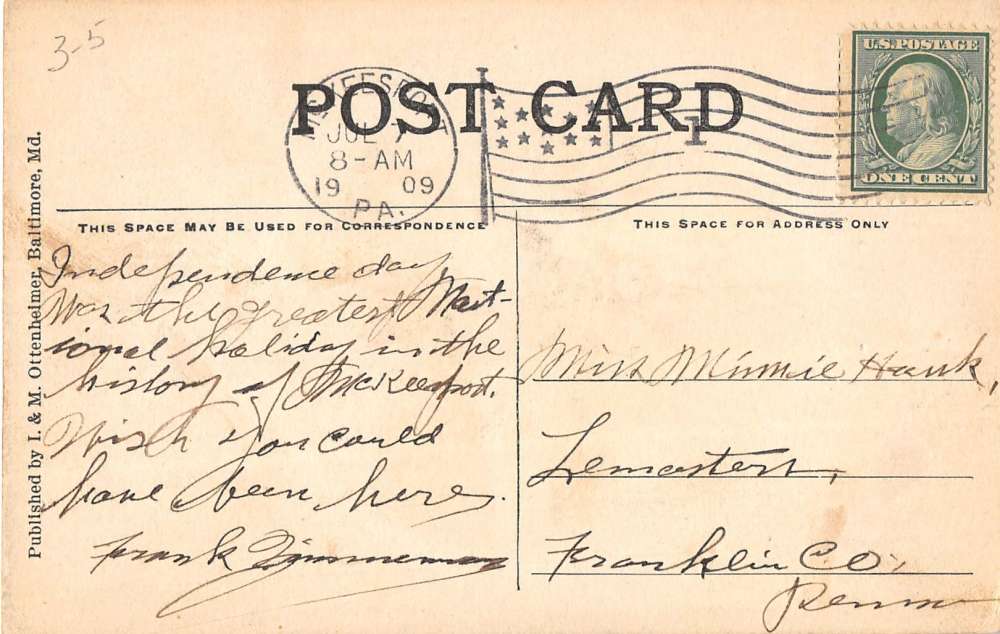 3-5
POST CARD
McKEESPORT
JUL 7
8-AM
19 09
PA.
1
U.S. POSTAGE
ONE CENT
THIS SPACE MAY BE USED FOR CORRESPONDENCE
THIS SPACE FOR ADDRESS ONLY
Published by I. & M. Ottenheimer, Baltimore, Md.
Independence day
Was the greatest Nat-
ional holiday in the
history of McKeesport.
Wish you could
have been here.
Frank Zimmerman
Miss Minnie Hawk,
Lemasters,
Franklin Co,
Penna